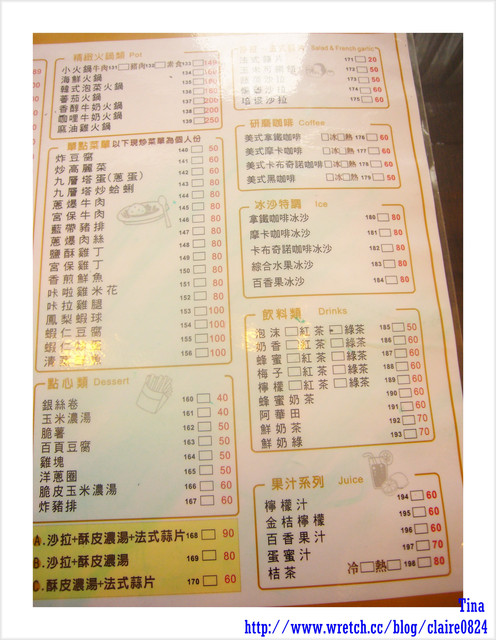 精緻火鍋類 Pot
小火鍋牛肉131□雞肉132□素食133□140
海鮮火鍋
韓式泡菜火鍋
番茄火鍋
香醇牛奶火鍋 200
咖哩牛奶火鍋 200
麻油雞火鍋 250
單點菜單 以下現炒菜單為個人份
炸豆腐 140□80
炒高麗菜 80
九層塔蛋(蔥蛋) 80
九層塔炒蛤蜊 80
蔥爆牛肉 80
宮保牛肉 80
藍帶豬排 80
蔥爆肉絲 80
鹽酥雞丁 148□80
宮保雞丁 80
香煎鮮魚 150□80
咔啦雞米花 80
咔拉雞腿 152□80
鳳梨蝦球 153□100
蝦仁豆腐 154□100
蝦仁 155□100
清 156□100
點心類 Dessert
銀絲卷 160□40
玉米濃湯 161□40
脆薯 162□50
百頁豆腐 163□50
雞塊 164□50
洋蔥圈 165□50
脆皮玉米濃湯 166□60
炸豬排 167□60
A.沙拉+酥皮濃湯+法式蒜片168□90
B.沙拉+酥皮濃湯 169□80
C.酥皮濃湯+法式蒜片 170□60
Salad & French garlic
法式蒜片 171□20
172□50
173□50
培根沙拉 175□60
研磨咖啡 Coffee
美式拿鐵咖啡 □冰□熱 176□60
美式摩卡咖啡 □冰□熱 177□60
美式卡布奇諾咖啡□冰□熱 178□60
美式黑咖啡 □冰□熱 179□50
冰沙特調 Ice
拿鐵咖啡冰沙 180□80
摩卡咖啡冰沙 181□80
卡布奇諾咖啡冰沙 182□80
綜合水果冰沙 183□80
百香果冰沙 184□80
飲料類 Drinks
泡沫□紅茶□綠茶 185□50
奶香□紅茶□綠茶 186□60
蜂蜜□紅茶□綠茶 187□60
梅子□紅茶□綠茶 60
檸檬□紅茶□綠茶 60
蜂蜜奶茶 190□60
阿華田 191□60
鮮奶茶 192□70
鮮奶綠 193□70
果汁系列 Juice
檸檬汁 194□60
金桔檸檬 195□60
百香果汁 196□60
蛋蜜汁 197□70
桔茶 冷□熱□198□80
Tina
http://www.wretch.cc/blog/claire0824